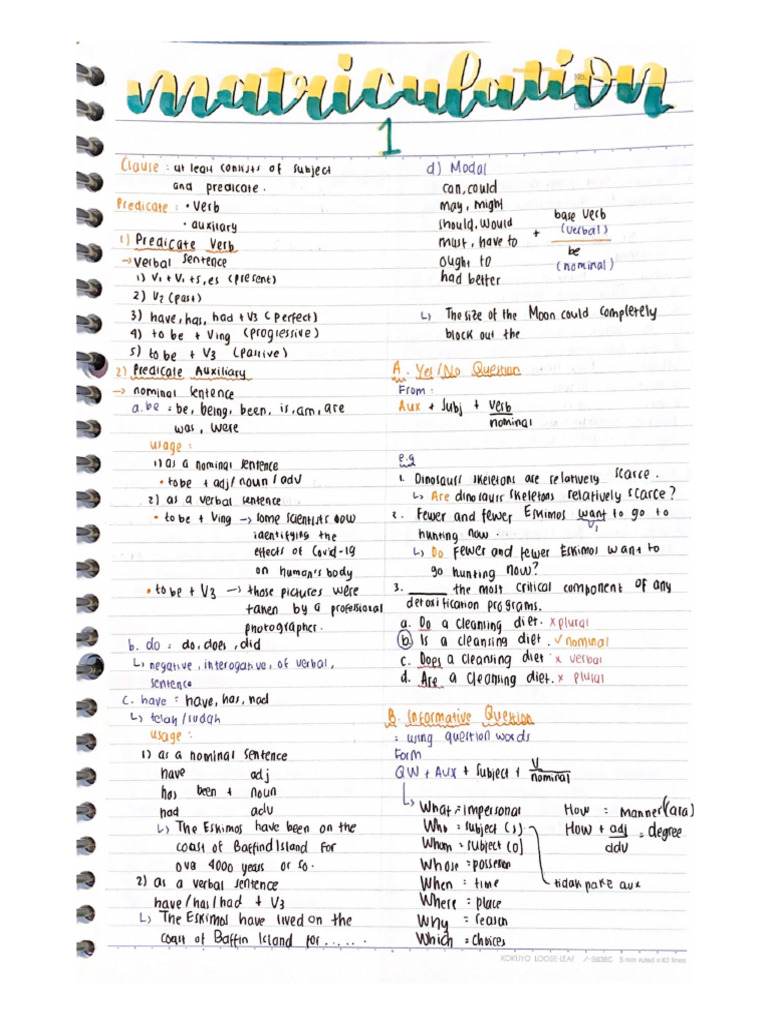 matriculation
No.
1
Clause : at least consists of subject
and predicate.
Predicate : • Verb
• auxilary
1) Predicate Verb
→ Verbal sentence
1) V₁ + V₁ + s, es (present)
2) V₂ (past)
3) have, has, had + V3 (perfect)
4) to be + Ving (progressive)
5) to be + V3 (passive)
2) Predicate Auxiliary
→ nominal sentence
a. be = be, being, been, is, am, are
was, were
usage :
1) as a nominal sentence
• to be + adj / noun / adv
2) as a verbal sentence
• to be + Ving → some scientists now
identifying the
effects of Covid-19
on human's body
• to be + V3 → those pictures were
taken by a professional
photographer.
b. do = do, does, did
↳ negative, interogative, of verbal,
sentence
c. have = have, has, had
↳ telah / sudah
usage :
1) as a nominal sentence
have adj
has been + noun
had adv
↳ The Eskimos have been on the
coast of Baffind Island for
ove 4000 years or so.
2) as a verbal sentence
have / has / had + V3
↳ The Eskimos have lived on the
coast of Baffin Island for......
d) Modal
can, could
may, might
should, would
must, have to
ought to
had better
+ base verb
(verbal)
be
(nominal)
↳ The size of the Moon could completely
block out the
A. Yes/No Question
From :
Aux + Subj + verb
nominal
e.g
1. Dinosaurs skeletons are relatively scarce.
↳ Are dinosaurs skeletons relatively scarce?
2. Fewer and fewer Eskimos want to go to
V₁
hunting now...
↳ Do fewer and fewer Eskimos want to
go hunting now?
3. ______ the most critical component of any
detoxification programs.
a. Do a cleansing diet. x plural
b. Is a cleansing diet. ✓ nominal
c. Does a cleansing diet. x verbal
d. Are a cleansing diet. x plural
B. Informative Question
= using question words
Form
QW + Aux + subject + V
nominal
↳ What = impersonal
Who = subject (s)
Whom = subject (o)
Whose = possesion
When = time
Where = place
Why = reason
Which = choices
tidak pake aux
How = manner (cara)
How + adj = degree
adv
KOKUYO LOOSE-LEAF ノ-S836C 5 mm ruled × 43 lines